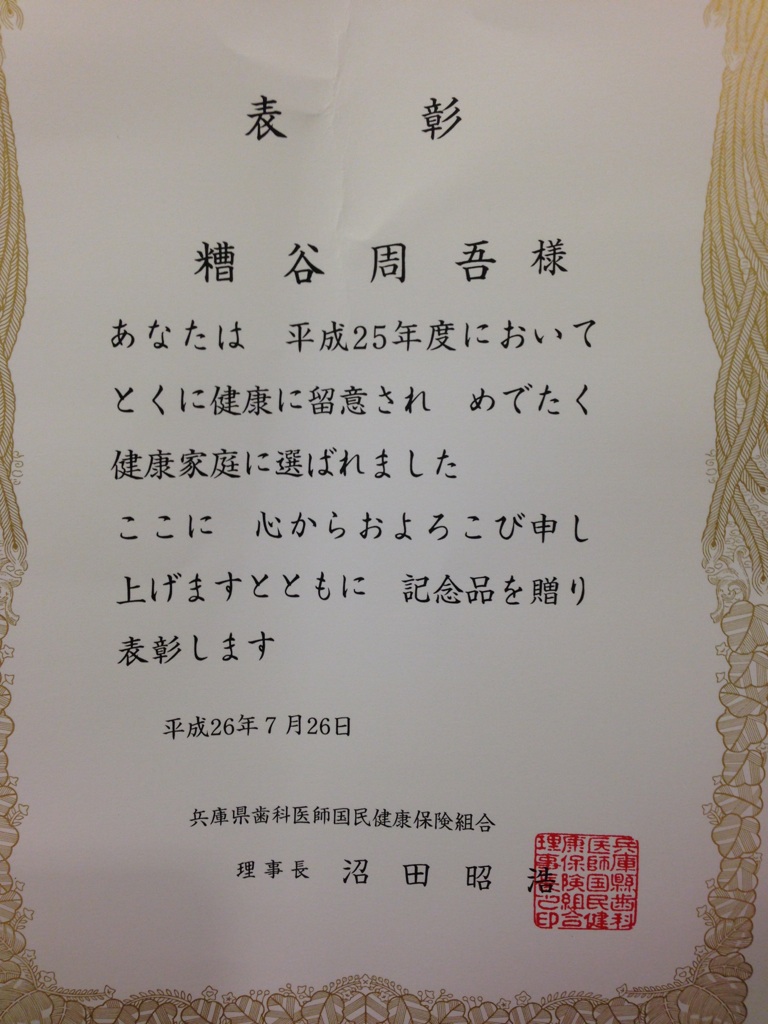 表彰
糟谷周吾様
あなたは 平成25年度において
とくに健康に留意され めでたく
健康家庭に選ばれました
ここに 心からおよろこび申し
上げますとともに 記念品を贈り
表彰します
平成26年7月26日
兵庫県歯科医師国民健康保険組合
理事長 沼田昭浩
兵庫縣歯科
医師国民健
康保険組合
理事長之印